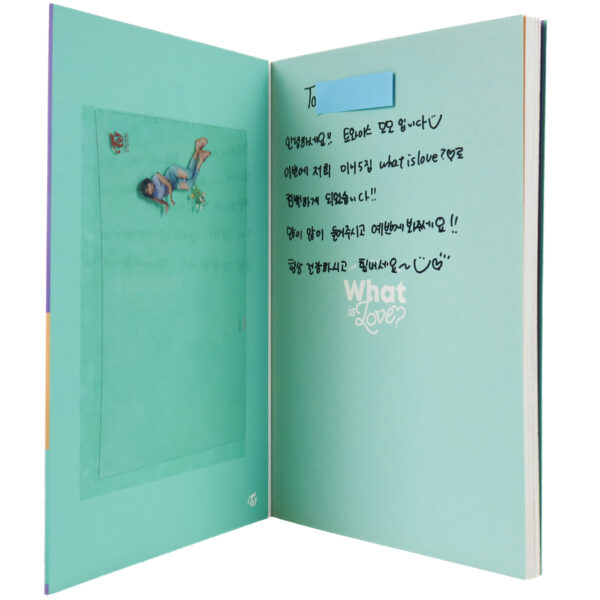 To
안녕하세요!! 트와이스 모모 입니다
이번에 저희 미니5집 what is love?♡로
컴백하게 되었습니다!!
많이 많이 들어주시고 예쁘게 봐주세요!!
항상 건강하시고 힘내세요~
What
is
Love?